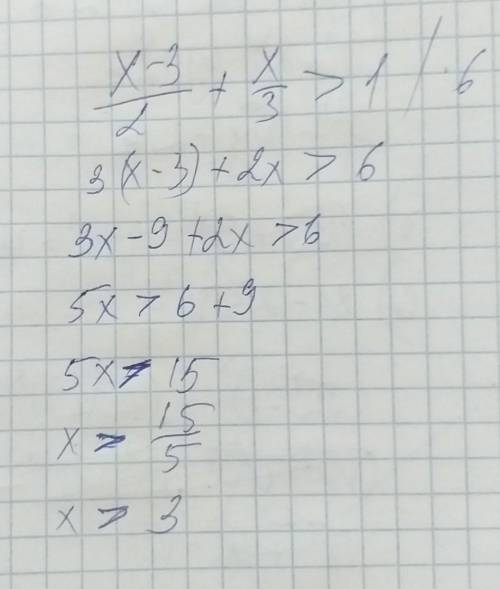 (x-3)/2 + x/3 > 1 / · 6
3(x-3) + 2x > 6
3x - 9 + 2x > 6
5x > 6 + 9
5x > 15
x > 15/5
x > 3